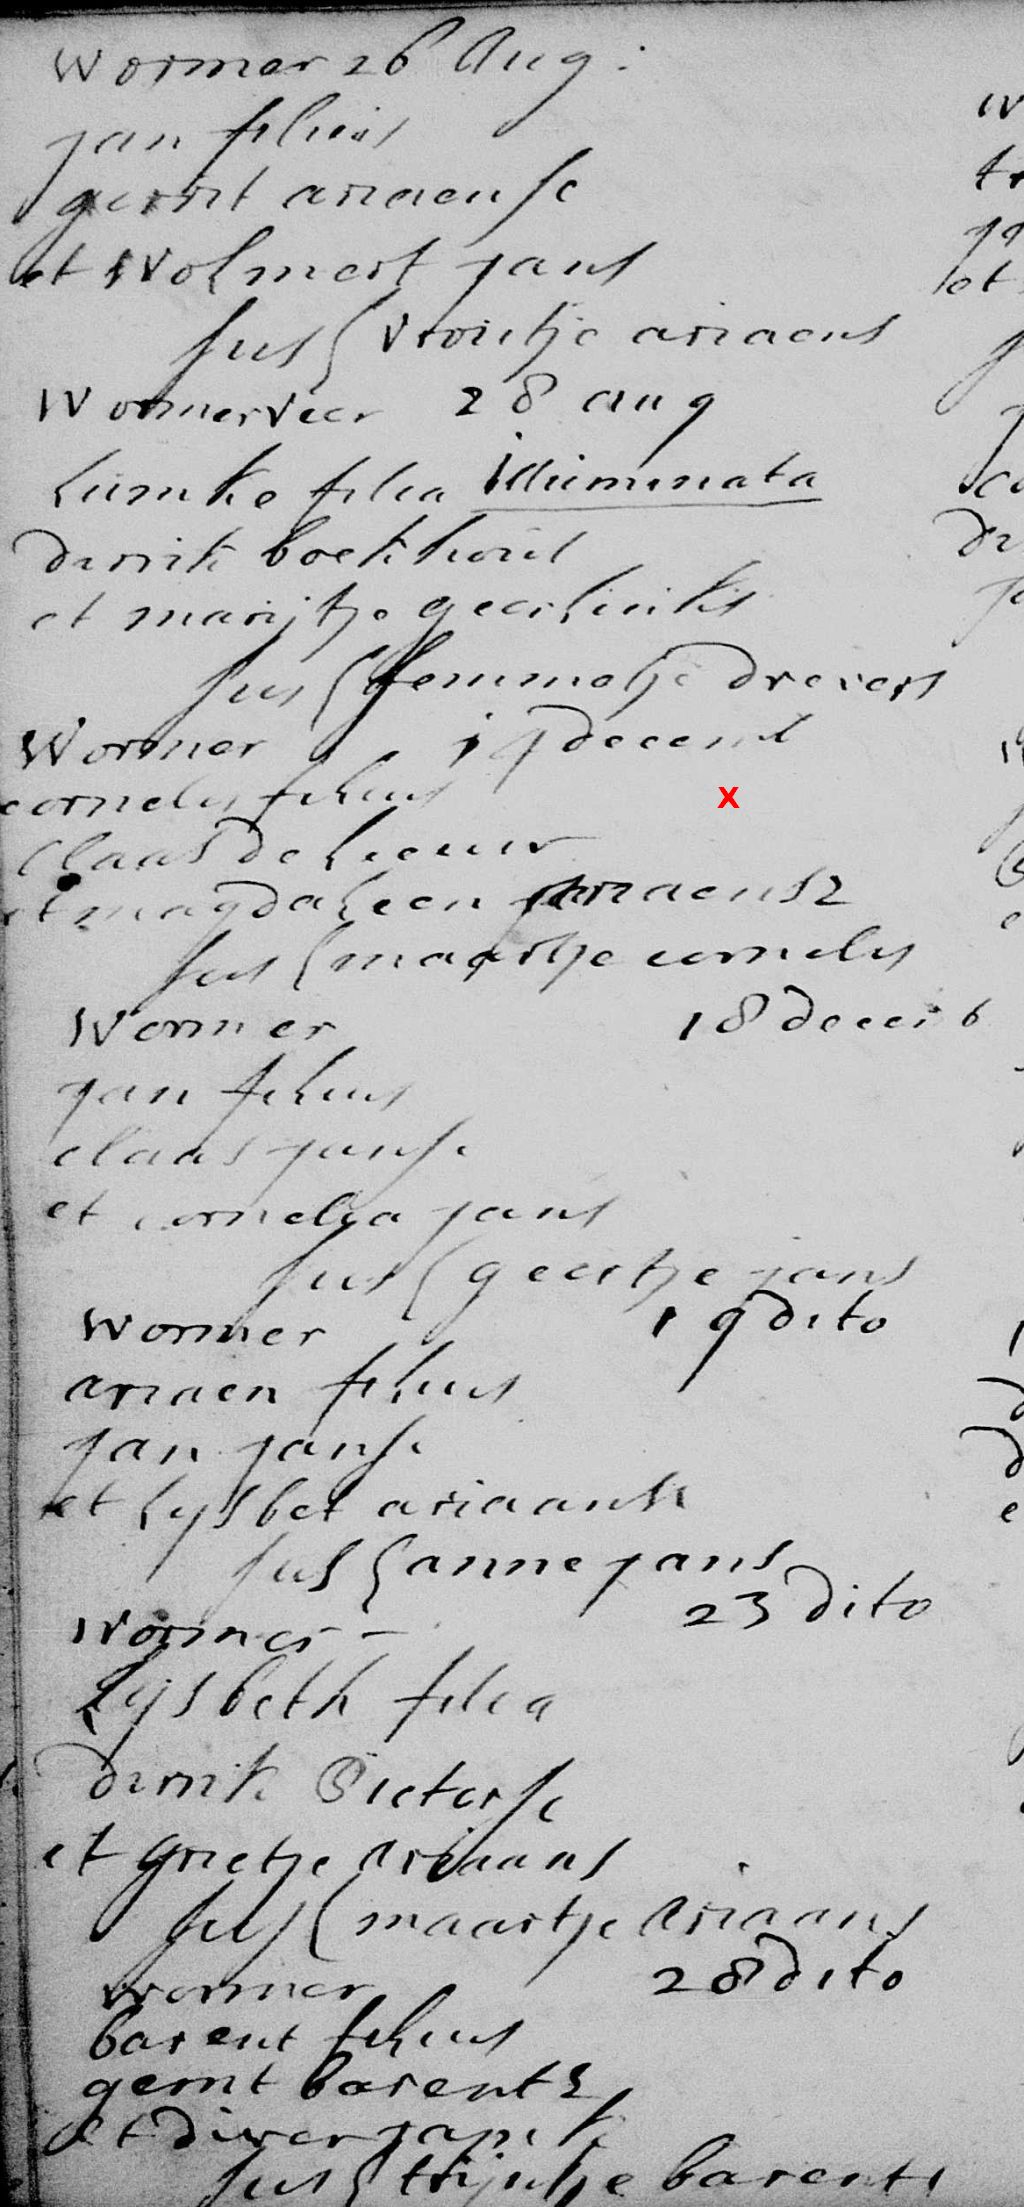 Wormer 26 Aug:
jan filius
gerrit ariaense
et Wolmert jans
sus { vroutje ariaens
Wormerveer 28 aug
Luimke filia illuminata
dirrik boekhout
et marijtje geerlinks
sus { femmetje drevers
Wormer 14 decemb
cornelis filius
x
Claas de Leeuw
et magdaleen ariaensz
sus { maartje cornelis
Wormer 18 decemb
jan filius
claas janse
et cornelia jans
sus { geertje jans
Wormer 19 dito
ariaen filius
jan janse
et Lijsbet ariaanse
sus { anne jans
Wormer - 23 dito
Lijsbeth filia
dirrik Pieterse
et grietje Ariaans
sus { maartje Ariaans
wormer 28 dito
barent filius
gerrit barents
et diwer
sus { trijntje barents